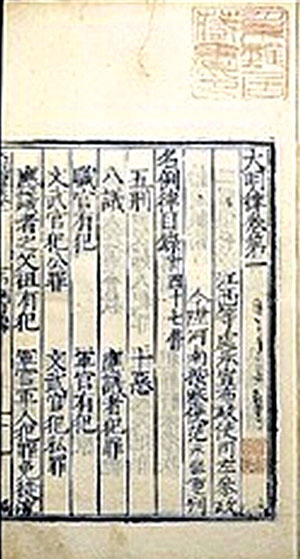 大明律卷第一
江西等處承宣布政使司左參政
今陞河南按察使范永鑾重刊
名例律目錄 計四十七條
五刑 十惡
八議 應議者犯罪
職官有犯 軍官有犯
文武官犯公罪 文武官犯私罪
應議者之父祖有犯 軍官軍人犯罪免徒流